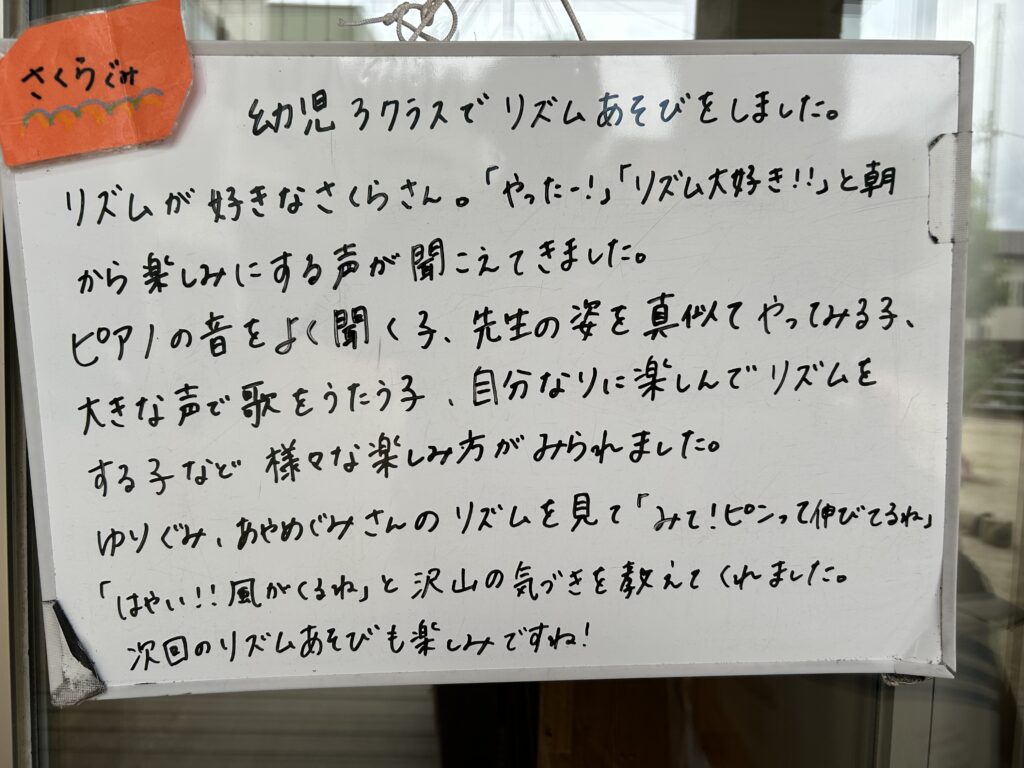 さくらぐみ
幼児3クラスでリズムあそびをしました。
リズムが好きなさくらさん。「やったー!」「リズム大好き!!」と朝
から楽しみにする声が聞こえてきました。
ピアノの音をよく聞く子、先生の姿を真似てやってみる子、
大きな声で歌をうたう子、自分なりに楽しんでリズムを
する子など様々な楽しみ方がみられました。
ゆりぐみ、あやめぐみさんのリズムを見て「みて!ピンって伸びてるね」
「はやい!!風がくるね」と沢山の気づきを教えてくれました。
次回のリズムあそびも楽しみですね!